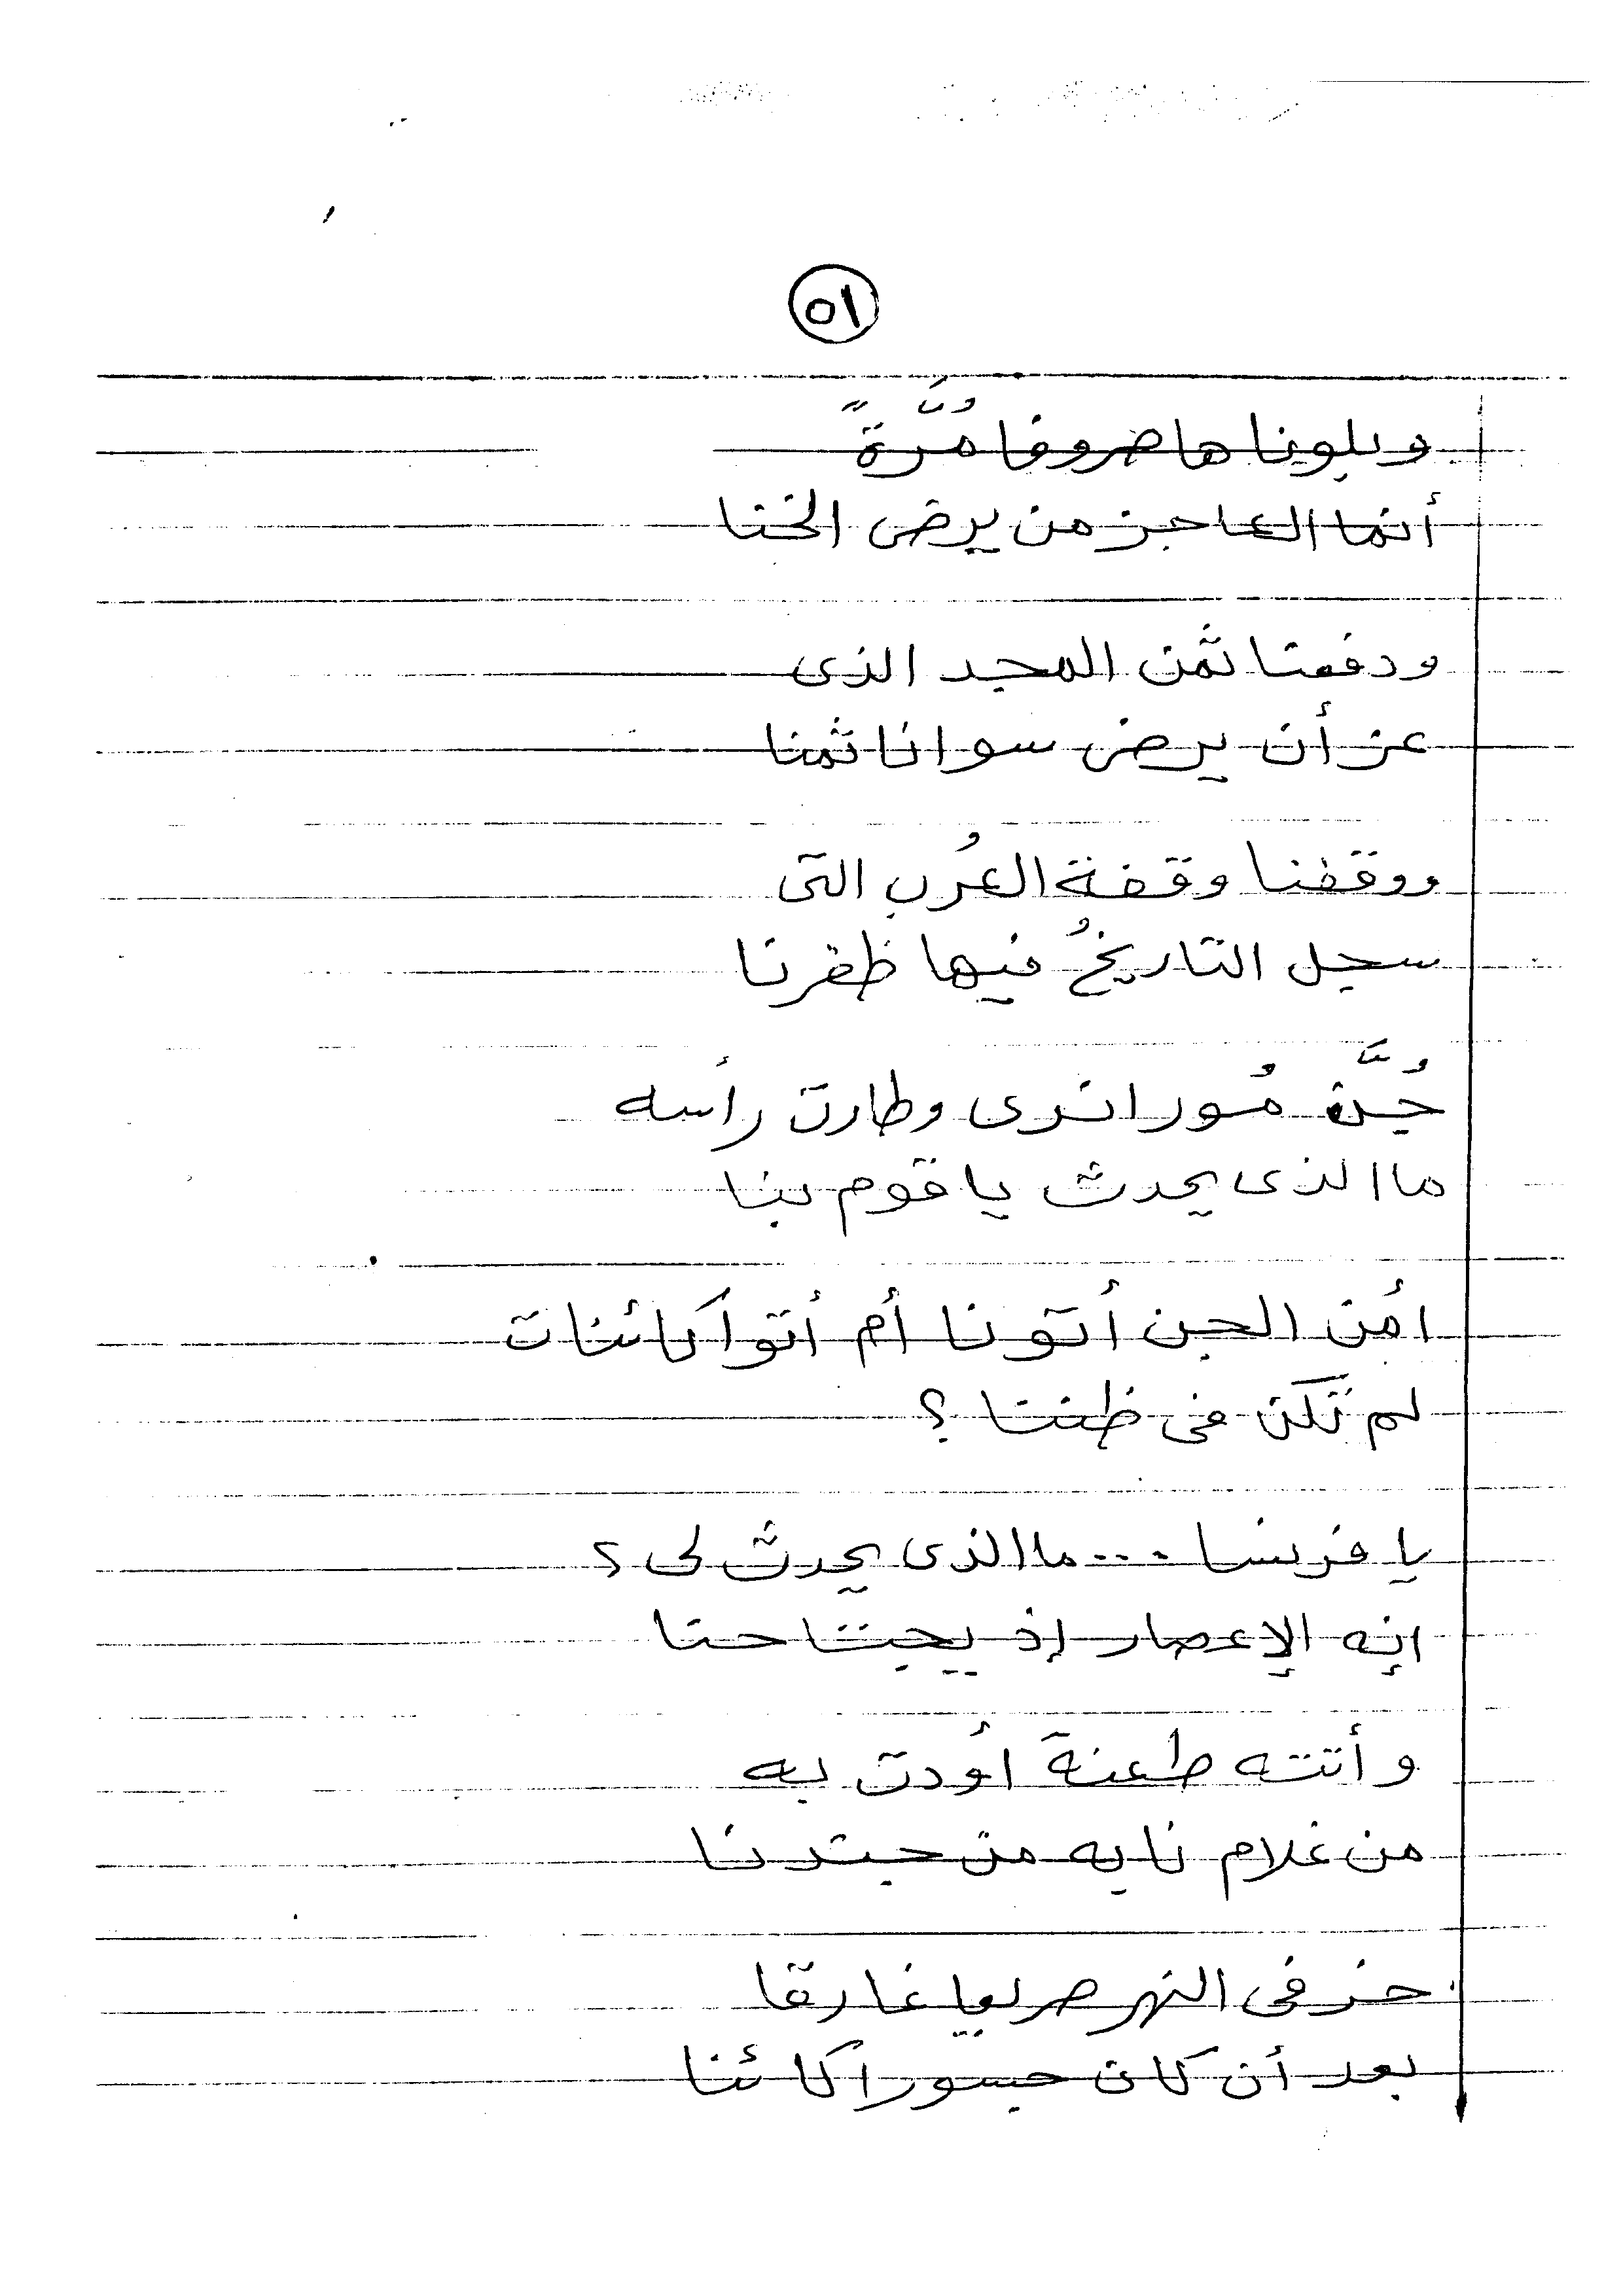 ٥١
وبلوناها ضروفا مُرَّةً
أنما العاجز من يرضى الخنا
ودفعنا ثمن المجد الذى
عز أن يرضى سوانا ثمنا
ووقفنا وقفة العُرب التى
سجل التاريخُ فيها ظفرنا
جُنَّ مُوراندى وطارت رأسه
ما الذى يحدث يا قوم بنا
أمن الجن أتونا أم أتوا كائنات
لم تكن فى ظننا ؟
يا فرنسا ... ما الذى يحدث لى ؟
إنه الإعصار إذ يجتاحنا
وأتته طعنة أودت به
من غلام نابه من جندنا
خر فى النهر صريعا غارقا
بعد أن كان جسوراً كائنا